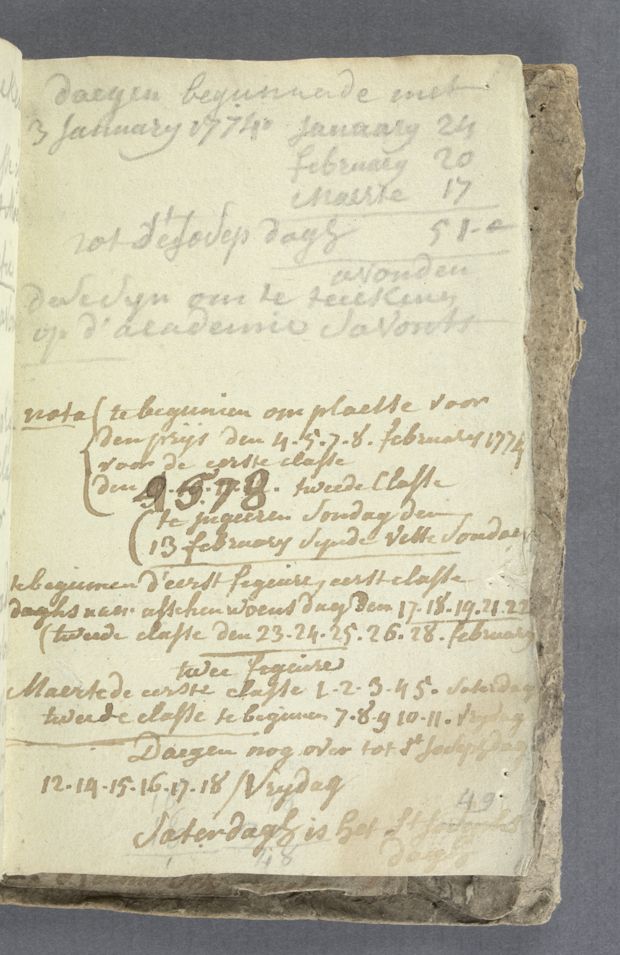 daegen begunnende met
3 January 1774 January 24
february 20
Maerte 17
tot St Josep dagh 51
avonden
om te teieknen
op d'academie savonts
nota te begunnen om plaetse voor
den prijs den 4.5.7.8. february 1774
voor de eerste classe
den 4 5 7 8 tweede Classe
te jugeeren Sondag den
13 february synde vette Sondag
te begunnen d'eerst fegeure, eerst classe
daghs naer asschen woensdag den 17.18.19.21.22
(tweede classe den 23.24.25.26.28. february
twee fegeure
Maerte de eerste classe 1.2.3.4.5. Saterdag
tweede classe te beginnen 7.8.9 10.11. vrydag
Daegen nog over tot St Josephsdag
12.14.15.16.17.18 / Vrydag
49
Saterdagh is het St Josephs
dagh
48